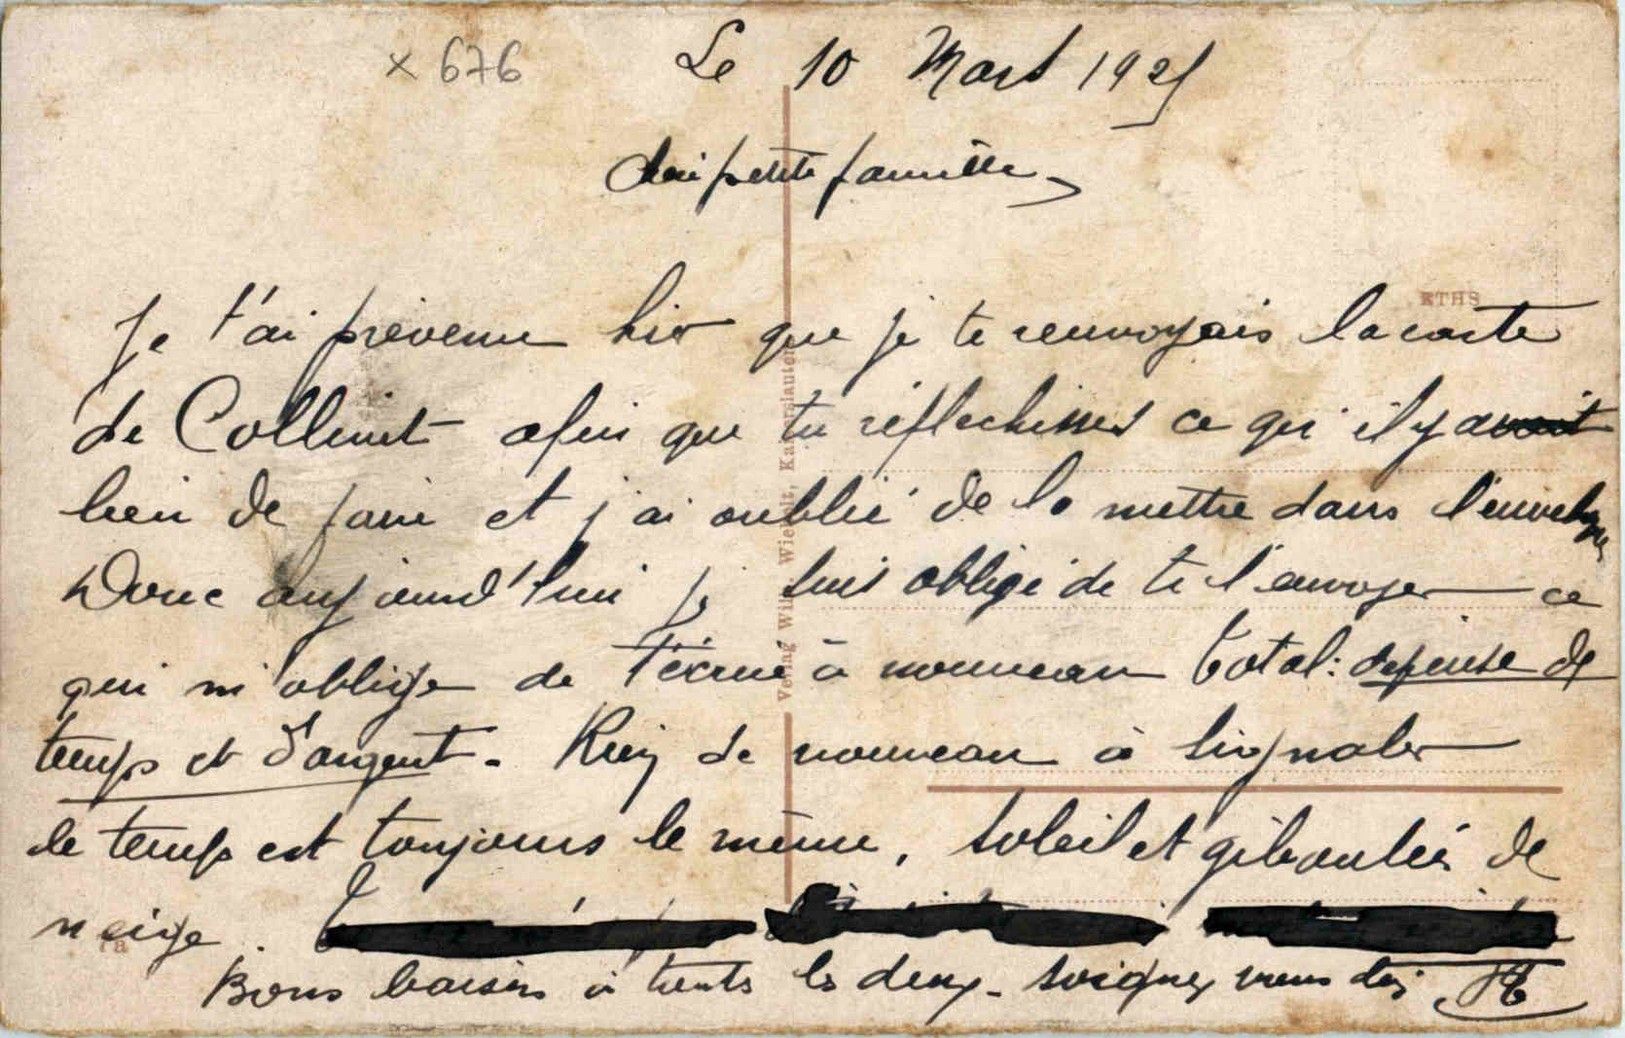 x 676
Le 10 Mars 1921
Chère petite famille
ETHS
Je t'ai prévenue hier que je te renvoyais la carte
de Collinet afin que tu réfléchisses ce qu'il y avait
bien de faire et j'ai oublié de la mettre dans l'enveloppe
Donc aujourd'hui je suis obligé de te l'envoyer ce
qui m'oblige de t'écrire à nouveau Total: dépense de
temps et d'argent. Rien de nouveau à signaler
le temps est toujours le même, soleil et giboulées de
neige.
Bons baisers à toutes les deux. Soignez vous bien
Verlag Wilh. Wiedelt, Kaiserslautern